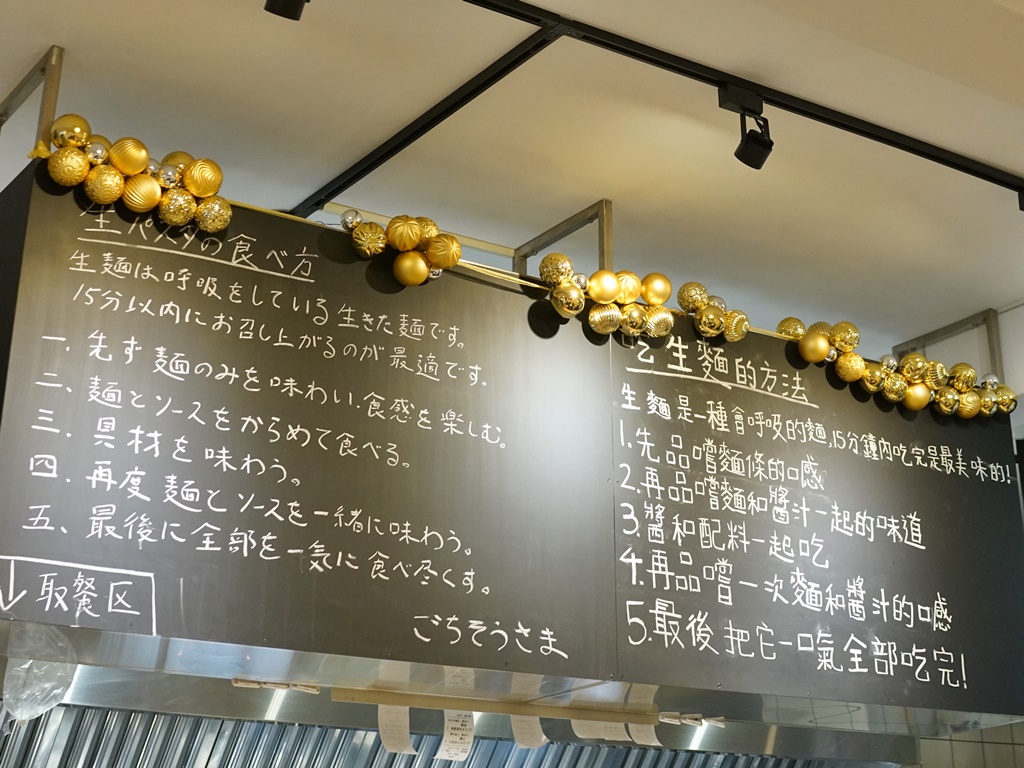 生パスタの食べ方
生麺は呼吸をしている生きた麺です。
15分以内にお召し上がるのが最適です。
一、先ず麺のみを味わい、食感を楽しむ。
二、麺とソースをからめて食べる。
三、具材を味わう。
四、再度麺とソースを一緒に味わう。
五、最後に全部を一気に食べ尽くす。
ごちそうさま
↓取餐区
吃生麵的方法
生麵是一種會呼吸的麵,15分鐘內吃完是最美味的!
1.先品嚐麵條的口感
2.再品嚐麵和醬汁一起的味道
3.醬和配料一起吃
4.再品嚐一次麵和醬汁的口感
5.最後把它一口氣全部吃完!